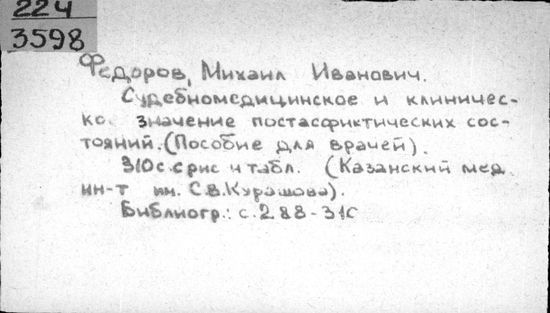 224
3598
Федоров, Михаил Иванович.
Судебномедицинское и клиничес-
ко. значение постасфиктических сос-
тояний. (Пособие для врачей).
310 с. с рис и табл. (Казанский мед.
ин-т им. С.В. Курашова).
Библиогр.: с. 288-310